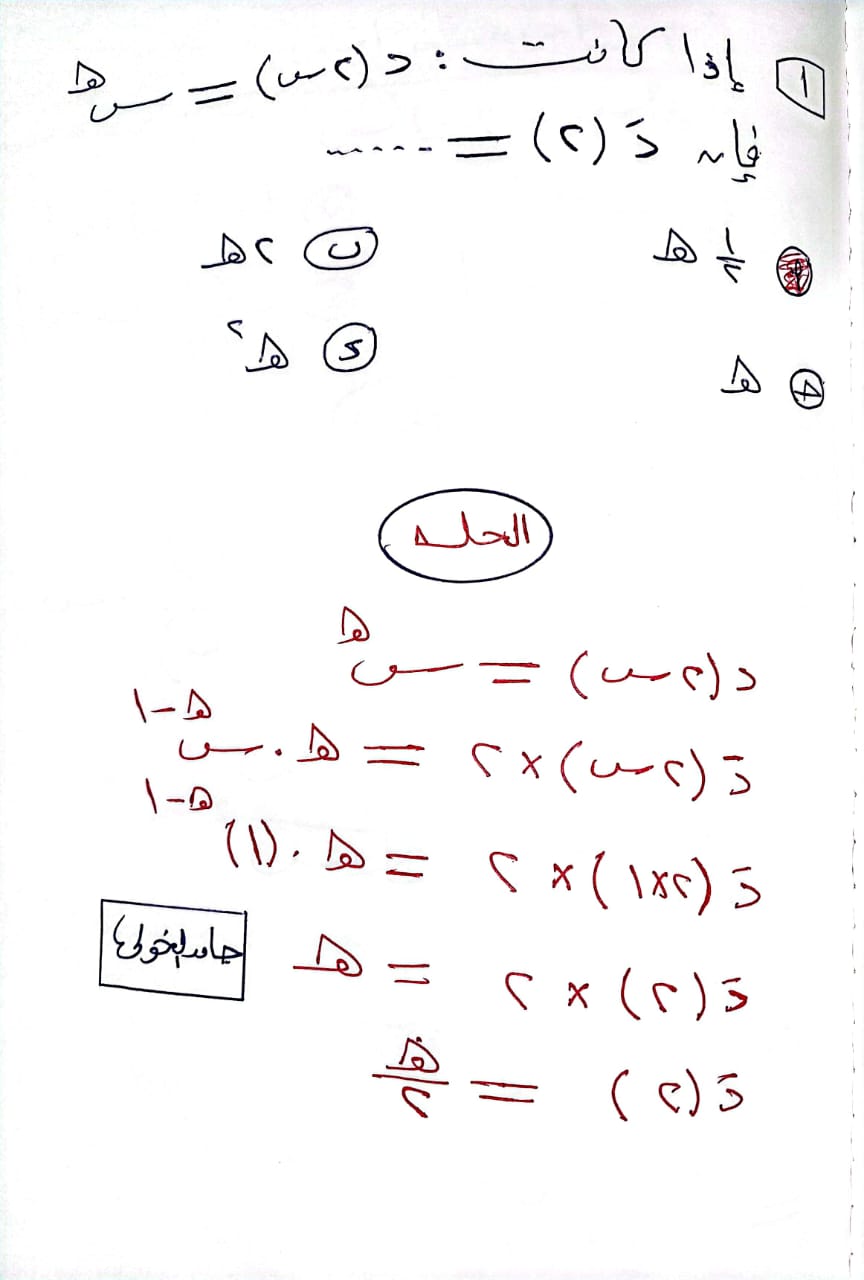 ١ إذا كانت : د (٢س) = س^هـ
فإن دَ (٢) = ......
أ ½ هـ ب ٢هـ
جـ هـ د هـ^٢
الحل
د (٢س) = س^هـ
دَ (٢س) × ٢ = هـ . س^(هـ-١)
دَ (٢×١) × ٢ = هـ . (١)^(هـ-١)
دَ (٢) × ٢ = هـ
حامد الخولي
دَ (٢) = هـ/٢